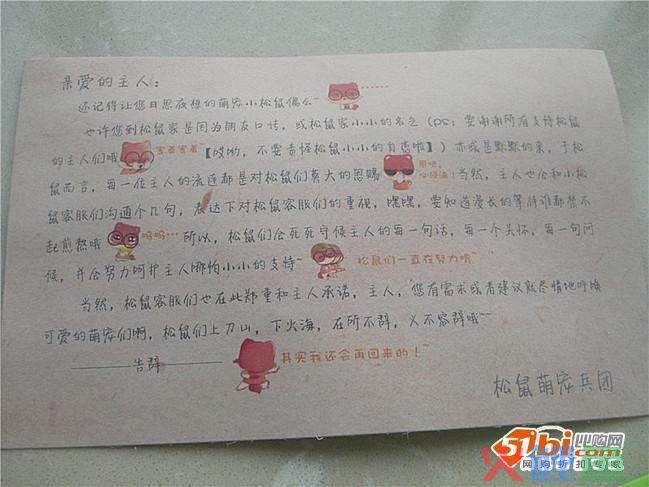 亲爱的主人：
还记得让您日思夜想的萌宠小松鼠偶么~ ……
也许您到松鼠家是因为朋友口传，或松鼠家小小的名气（PS：要谢谢所有支持松鼠
的主人们哦 害羞害羞【哎哟，不要责怪松鼠小小的自责啦】）亦或是默默的来，于松
鼠而言，每一位主人的流连都是对松鼠们莫大的恩赐 ！当然，主人也会和小松
鼠客服们沟通个几句，表达下对松鼠客服们的重视，嘿嘿，要知道漫长的等待谁都禁不
起煎熬哦 呜呜… 所以，松鼠们会死死守候主人的每一句话，每一个关怀，每一句问
候，并会努力呵护主人哪怕小小的支持~ 松鼠们一直在努力哦~
当然，松鼠客服们也在此郑重和主人承诺，主人，您有需求或者建议就尽情地呼唤
可爱的萌宠们啊，松鼠们上刀山，下火海，在所不辞，义不容辞哦~
——告辞 其实我还会再回来的！~
松鼠萌宠兵团
51bi.com 比购网
网购折扣专家